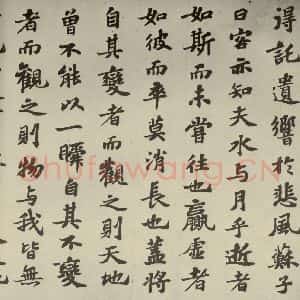 得託遺響於悲風蘇子
曰客亦知夫水与月乎逝者
如斯而未嘗往也贏虛者
如彼而卒莫消長也蓋將
自其變者而觀之則天地
曾不能以一瞬自其不變
者而觀之則物与我皆無
Shufawang.CN